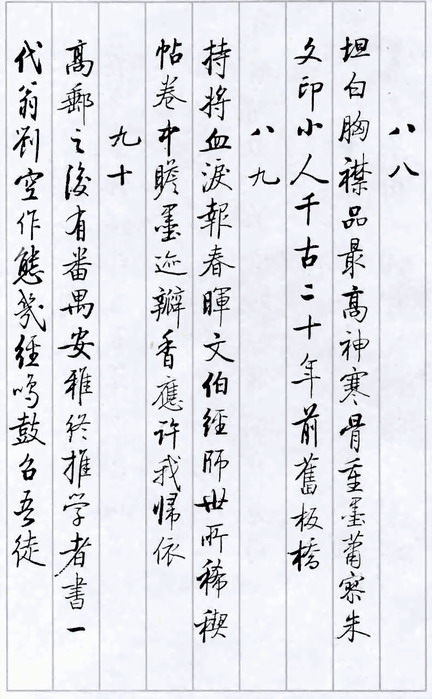 八八
坦白胸襟品最高神寒骨重墨蕭寥朱
文印小人千古二十年前舊板橋
八九
持將血淚報春暉文伯經師世所稀禊
帖卷中瞻墨迹瓣香應許我歸依
九十
高郵之後有番禺安雅終推学者書一
代翁劉空作態幾經鳴鼓召吾徒